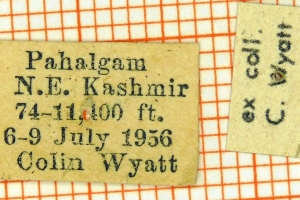 Pahalgam
N.E. Kashmir
74-11,400 ft.
6-9 July 1956
Colin Wyatt
ex coll.
C. Wyatt